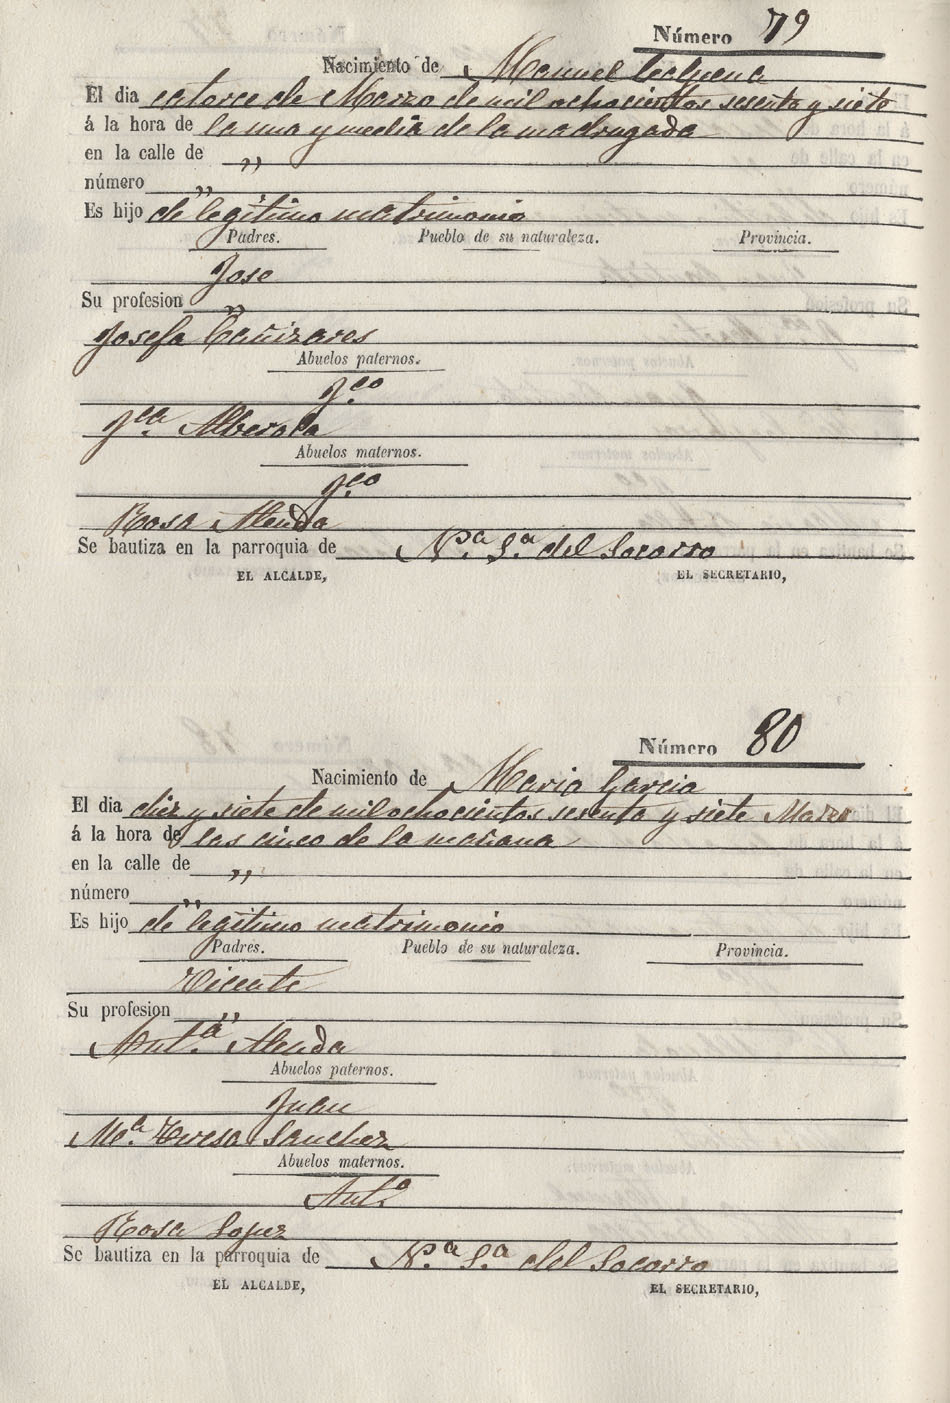 Número 79
Nacimiento de Manuel
El dia catorce de Marzo de mil ochocientos sesenta y siete
á la hora de la una y media de la madrugada
en la calle de „
número „
Es hijo de legitimo matrimonio
Padres. Pueblo de su naturaleza. Provincia.
Jose
Su profesion „
Josefa Cañizares
Abuelos paternos.
Fco
Fca. Alberola
Abuelos maternos.
Fco
Rosa Alenda
Se bautiza en la parroquia de N.a S.a del Socorro
EL ALCALDE, EL SECRETARIO,
Número 80
Nacimiento de Maria Garcia
El dia diez y siete de mil ochocientos sesenta y siete Marzo
á la hora de las cinco de la mañana
en la calle de „
número „
Es hijo de legitimo matrimonio
Padres. Pueblo de su naturaleza. Provincia.
Vicente
Su profesion „
Ant.a Alenda
Abuelos paternos.
Juan
Ma. Teresa Sanchez
Abuelos maternos.
Ant.o
Rosa Lopez
Se bautiza en la parroquia de N.a S.a del Socorro
EL ALCALDE, EL SECRETARIO,